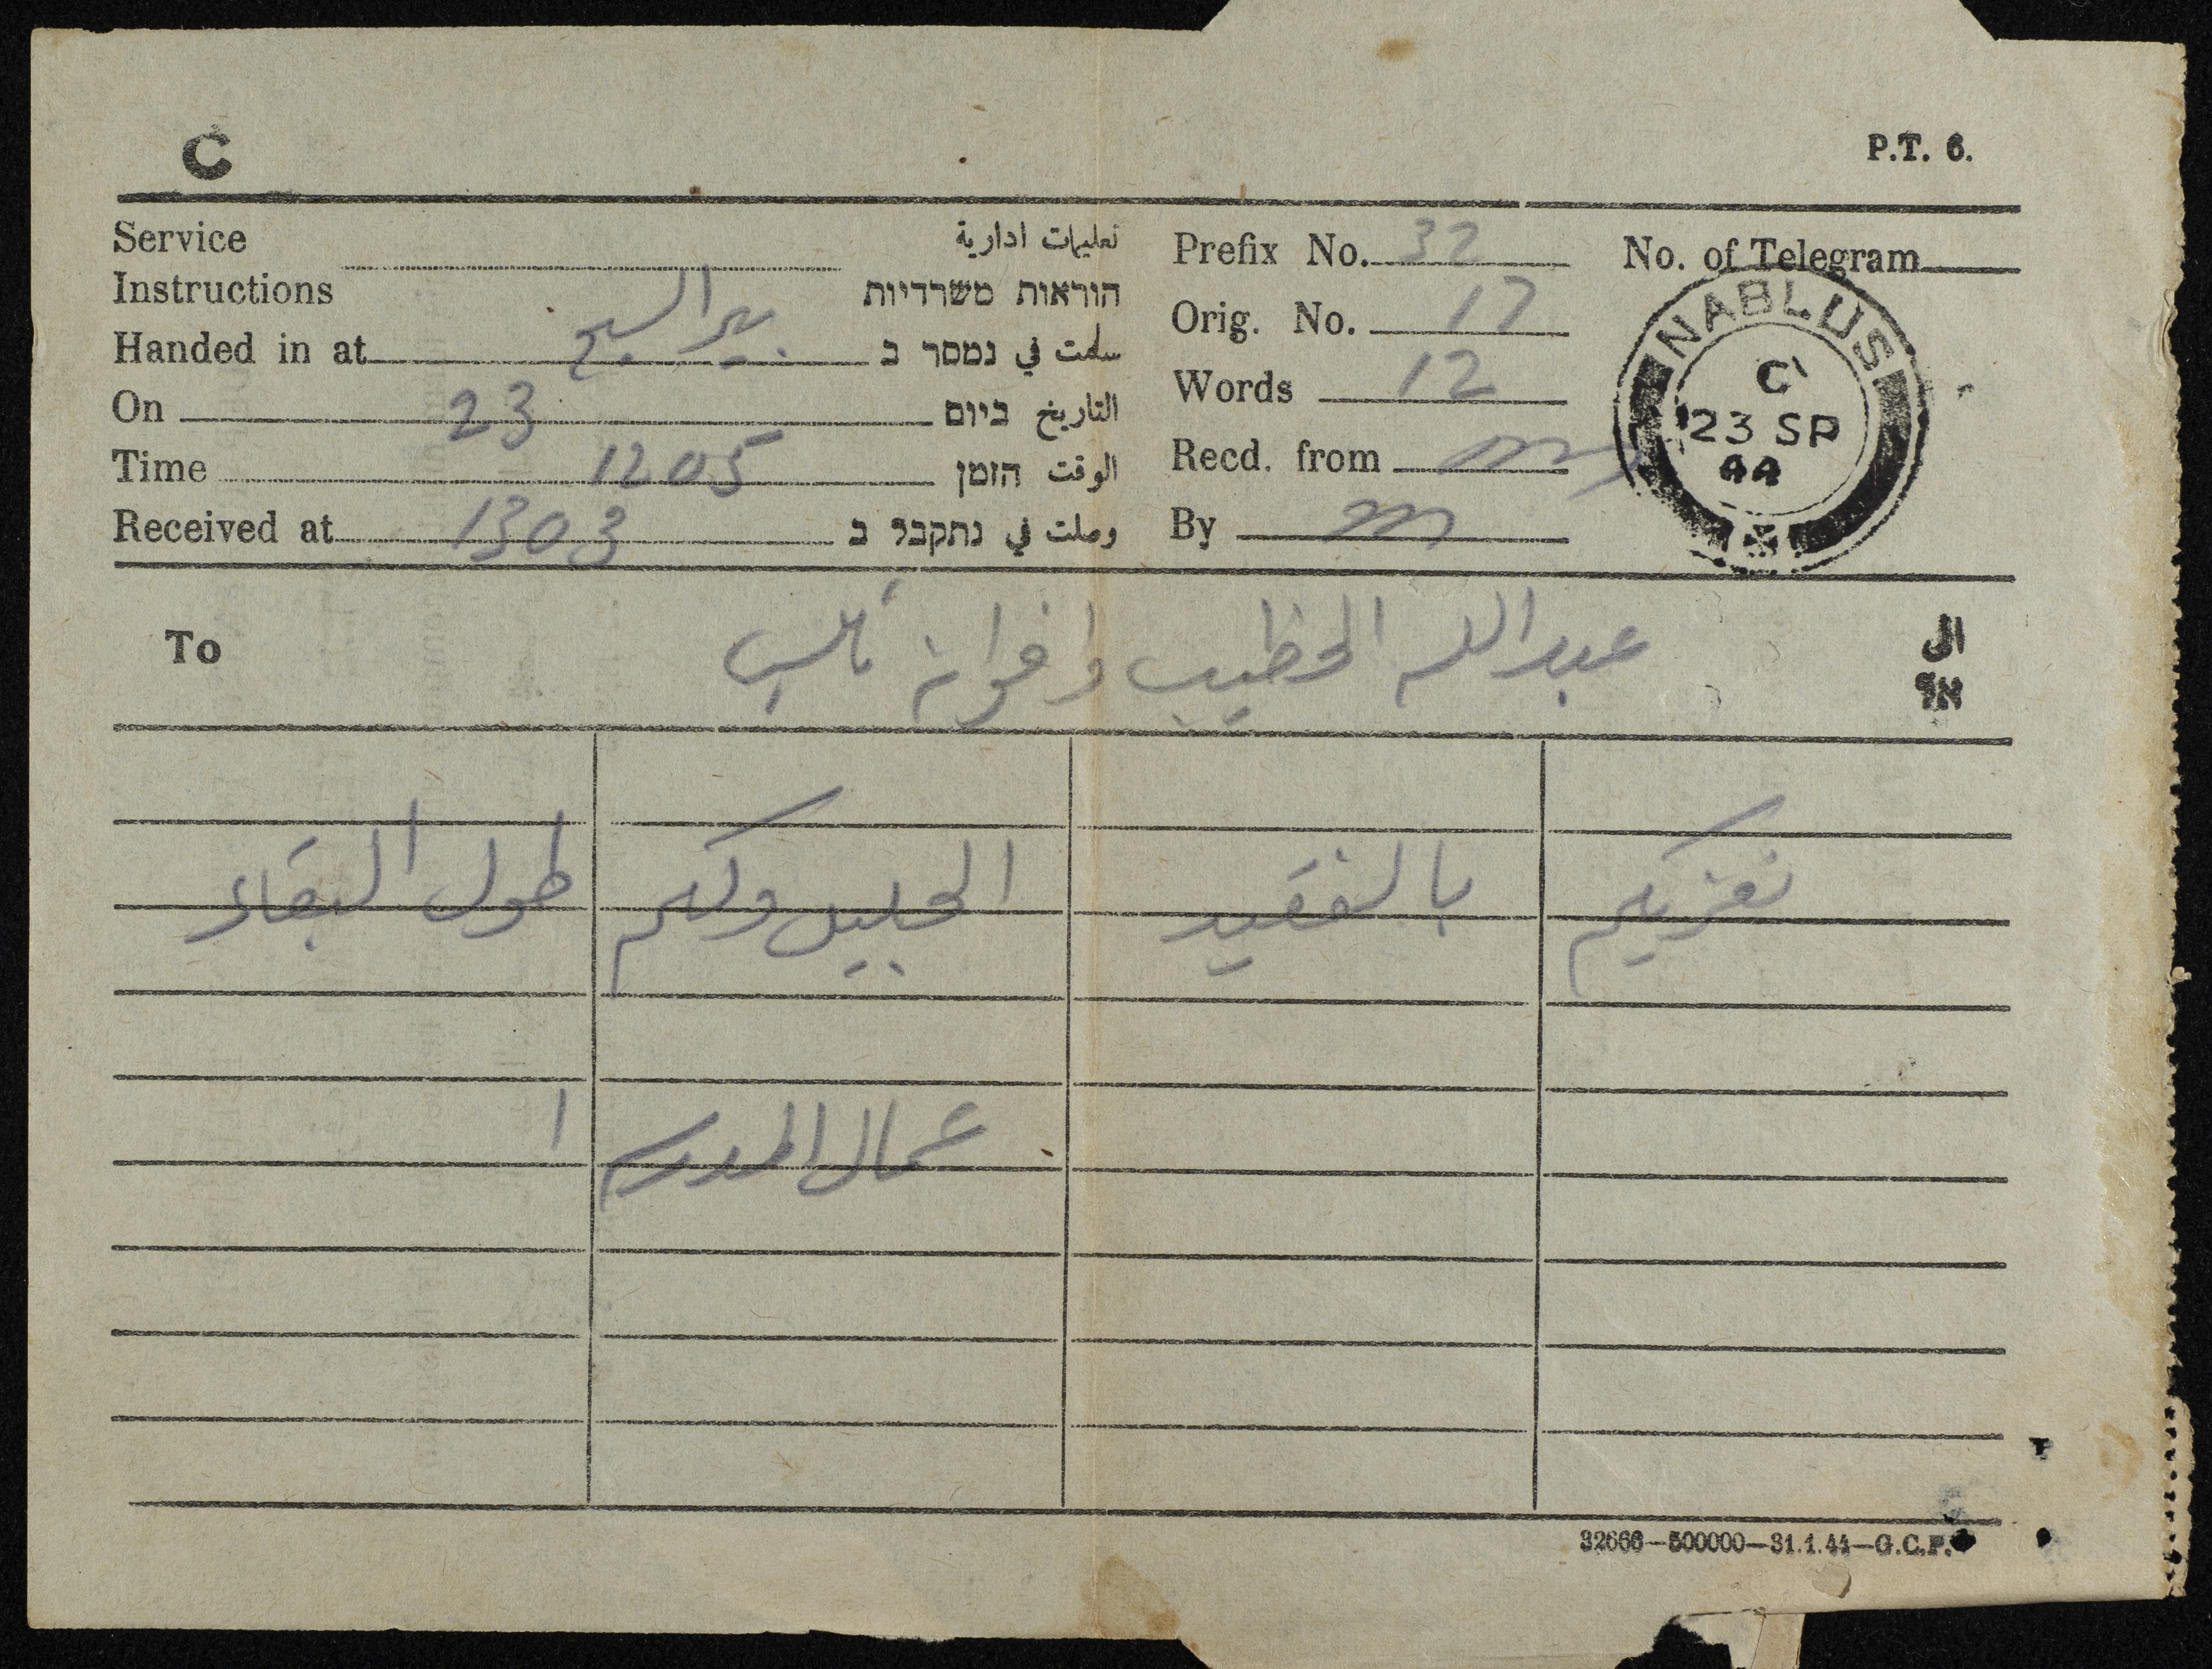 C
P.T. 6.
Service Instructions
تعليمات ادارية
הוראות משרדיות
Prefix No. 32
No. of Telegram
Handed in at بير السبع سلمت في נמסר ב
Orig. No. 17
On 23 التاريخ ביום
Words 12
Time 1205 الوقت הזמן
Recd. from
Received at 1303 وصلت في נתקבל ב
By
NABLUS
C
23 SP
44
To عبدالله الخطيب واخوانه نابلس الى
אל
نعزيكم بالفقيد الجليل ولكم طول البقاء
عمال
32666—500000—31.1.44—G.C.P.